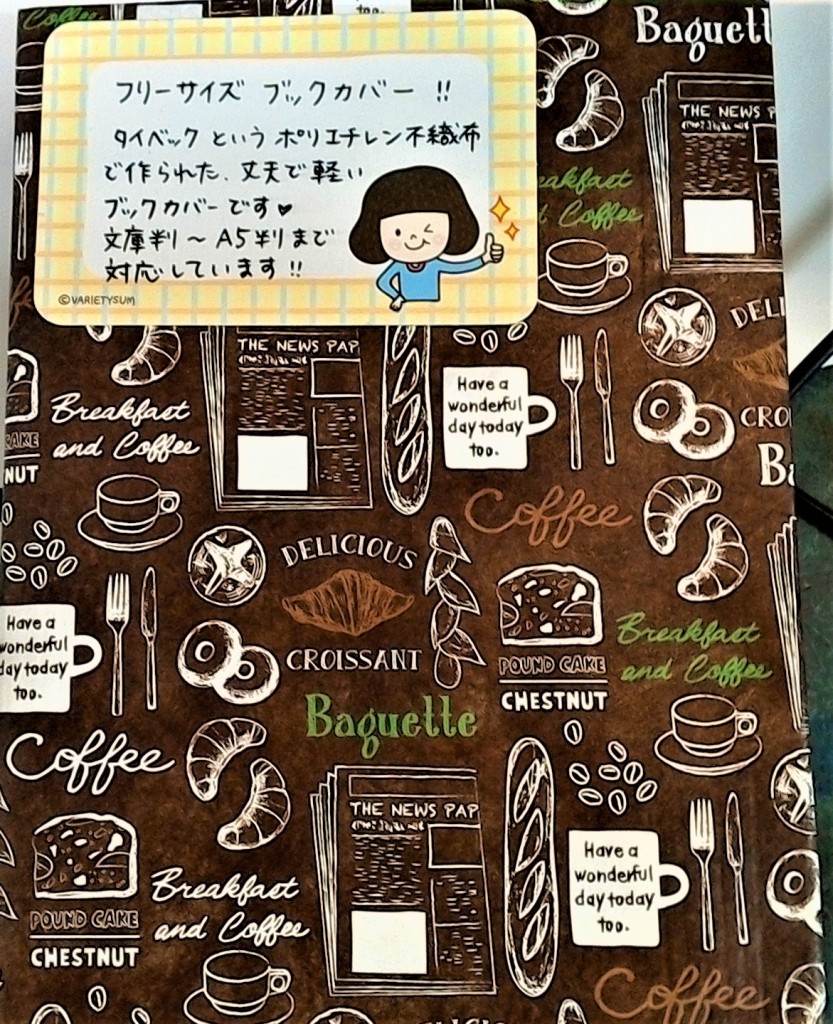 Coffee
too.
Baguett
フリーサイズ ブックカバー !!
タイベック という ポリエチレン不織布
で作られた、丈夫で軽い
ブックカバーです♥
文庫判〜A5判まで
対応しています!!
©VARIETYSUM
THE NEWS P
eakfast
Coffee
DELI
THE NEWS PAP
Have a
wonderful
day today
too.
Breakfast
and Coffee
CAKE
NUT
CRO
Ba
Coffee
DELICIOUS
CROISSANT
Have a
wonderful
day today
too.
POUND CAKE
CHESTNUT
Breakfast
and Coffee
Baguette
Coffee
THE NEWS PAP
Have a
wonderful
day today
too.
POUND CAKE
CHESTNUT
Breakfast
and Coffee
Coffee